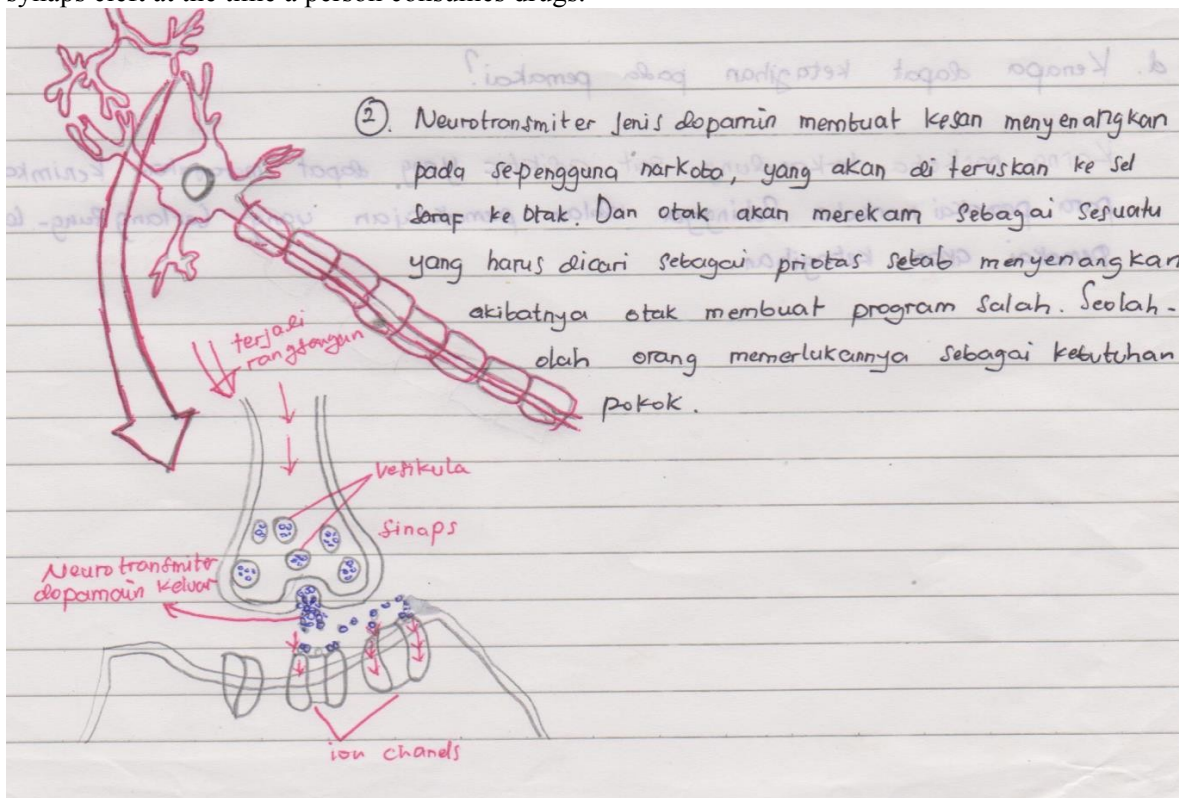 synaps cleft at the time a person consumes drugs.
d. Kenapa dapat ketagihan pada pemakai?
②. Neurotransmiter Jenis dopamin membuat kesan menyenangkan
pada sepengguna narkoba, yang akan di teruskan ke sel
saraf ke otak. Dan otak akan merekam sebagai sesuatu
yang harus dicari sebagai priotas sebab menyenangkan
akibatnya otak membuat program salah. Seolah-
olah orang memerlukannya sebagai kebutuhan
pokok.
terjadi
rangsangun
vesikula
sinaps
Neurotransmitor
dopamain keluar
ion chanels